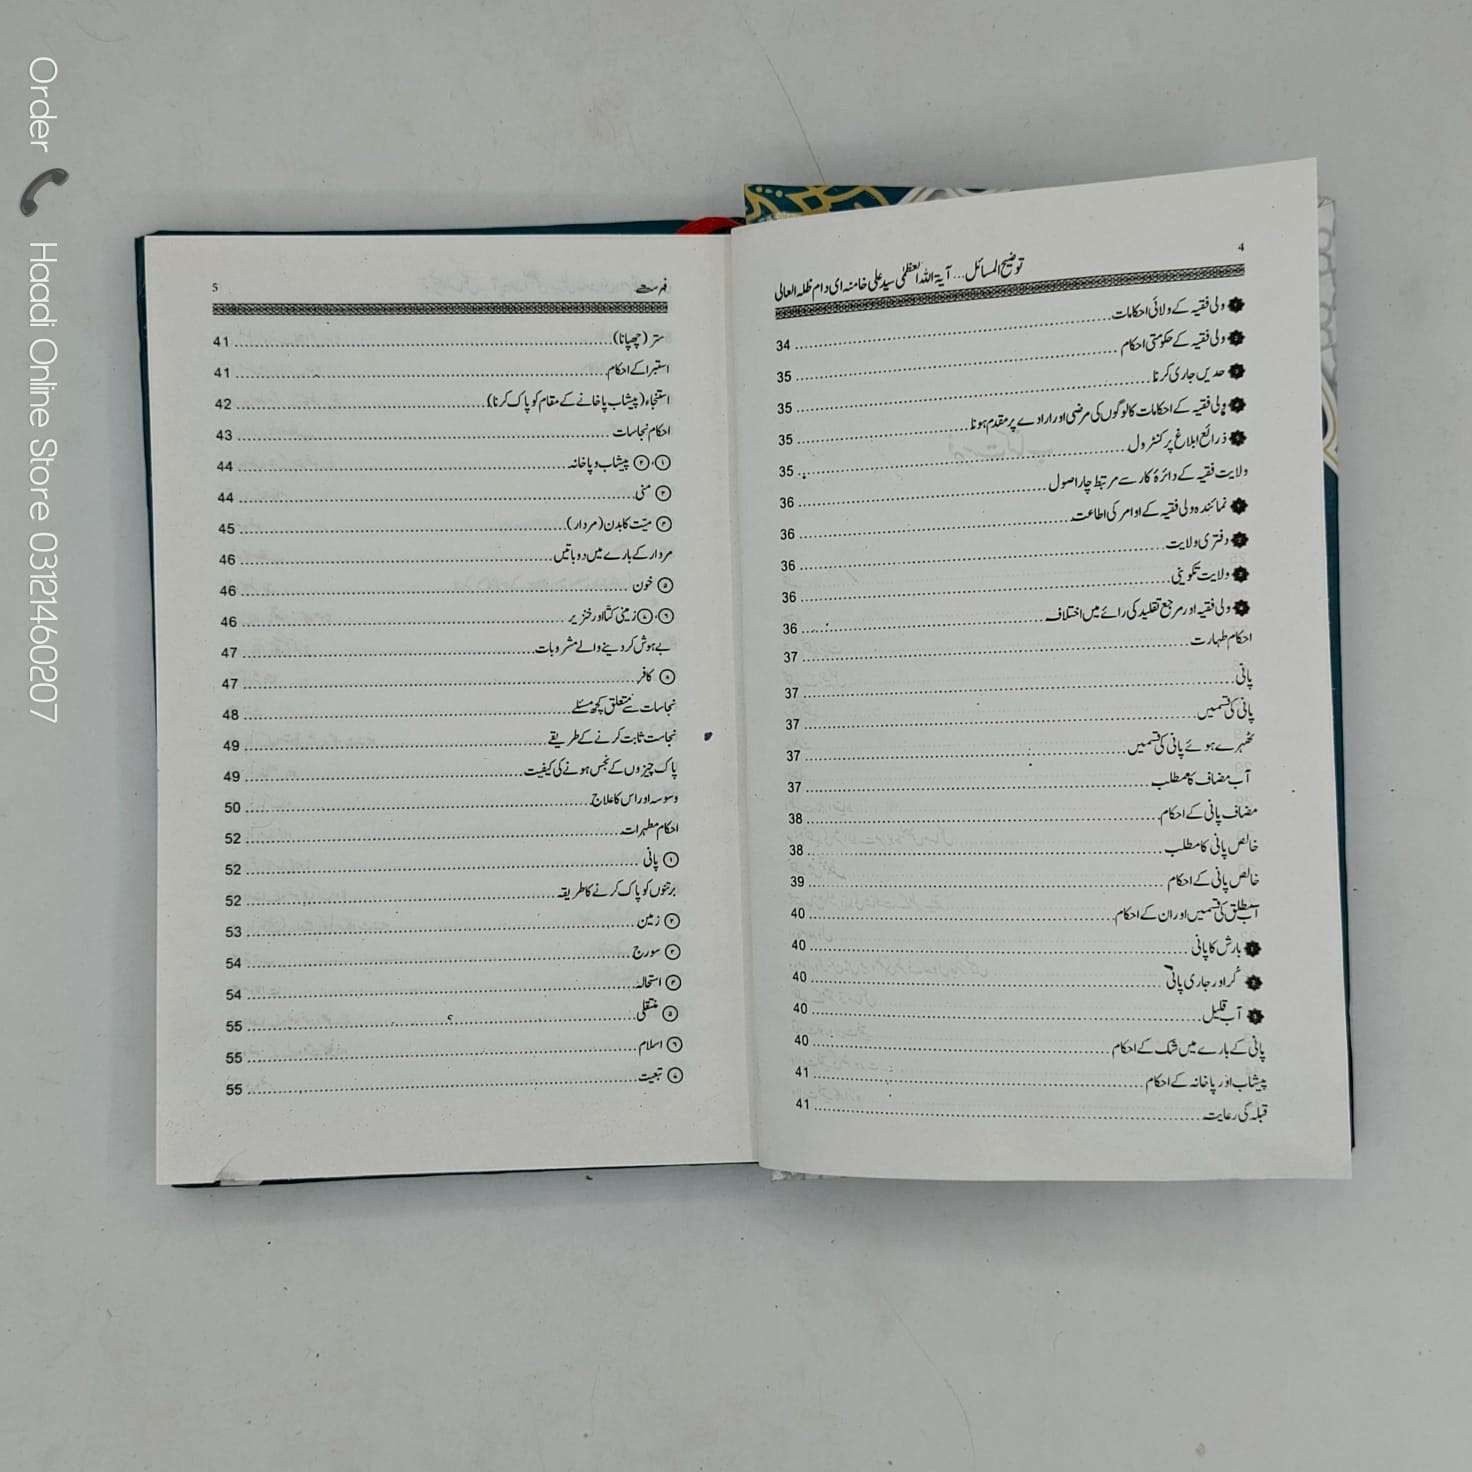 4
توضیح المسائل... آیۃ اللہ العظمٰی سید علی خامنہ ای دام ظلہ العالی
ولی فقیہ کے ولائی احکامات 34
ولی فقیہ کے حکومتی احکام 35
حدیں جاری کرنا 35
ولی فقیہ کے احکامات کا لوگوں کی مرضی اور ارادے پر مقدم ہونا 35
ذرائع ابلاغ پر کنٹرول 35
ولایت فقیہ کے دائرۂ کار سے مرتبط چار اصول 36
نمائندہ ولی فقیہ کے اوامر کی اطاعت 36
دفتری ولایت 36
ولایت تکوینی 36
ولی فقیہ اور مرجع تقلید کی رائے میں اختلاف 36
احکام طہارت 37
پانی 37
پانی کی قسمیں 37
ٹھہرے ہوئے پانی کی قسمیں 37
آب مضاف کا مطلب 37
مضاف پانی کے احکام 38
خالص پانی کا مطلب 38
خالص پانی کے احکام 39
آب مطلق کی قسمیں اور ان کے احکام 40
بارش کا پانی 40
کُر اور جاری پانی 40
آب قلیل 40
پانی کے بارے میں شک کے احکام 40
پیشاب اور پاخانہ کے احکام 41
قبلہ کی رعایت 41
فہرست 5
ستر (چھپانا) 41
استبرا کے احکام 41
استنجاء (پیشاب پاخانے کے مقام کو پاک کرنا) 42
احکام نجاسات 43
①،② پیشاب و پاخانہ 44
③ منی 44
④ میّت کا بدن (مردار) 45
مردار کے بارے میں دو باتیں 46
⑤ خون 46
⑥،⑦ زمینی کتا اور خنزیر 46
بے ہوش کر دینے والے مشروبات 47
⑧ کافر 47
نجاسات سے متعلق کچھ مسئلے 48
نجاست ثابت کرنے کے طریقے 49
پاک چیزوں کے نجس ہونے کی کیفیت 49
وسوسہ اور اس کا علاج 50
احکام مطہرات 52
① پانی 52
برتنوں کو پاک کرنے کا طریقہ 52
② زمین 53
③ سورج 54
④ استحالہ 54
⑤ منتقلی 55
⑥ اسلام 55
⑦ تبعیت 55
Order Haadi Online Store 03121460207